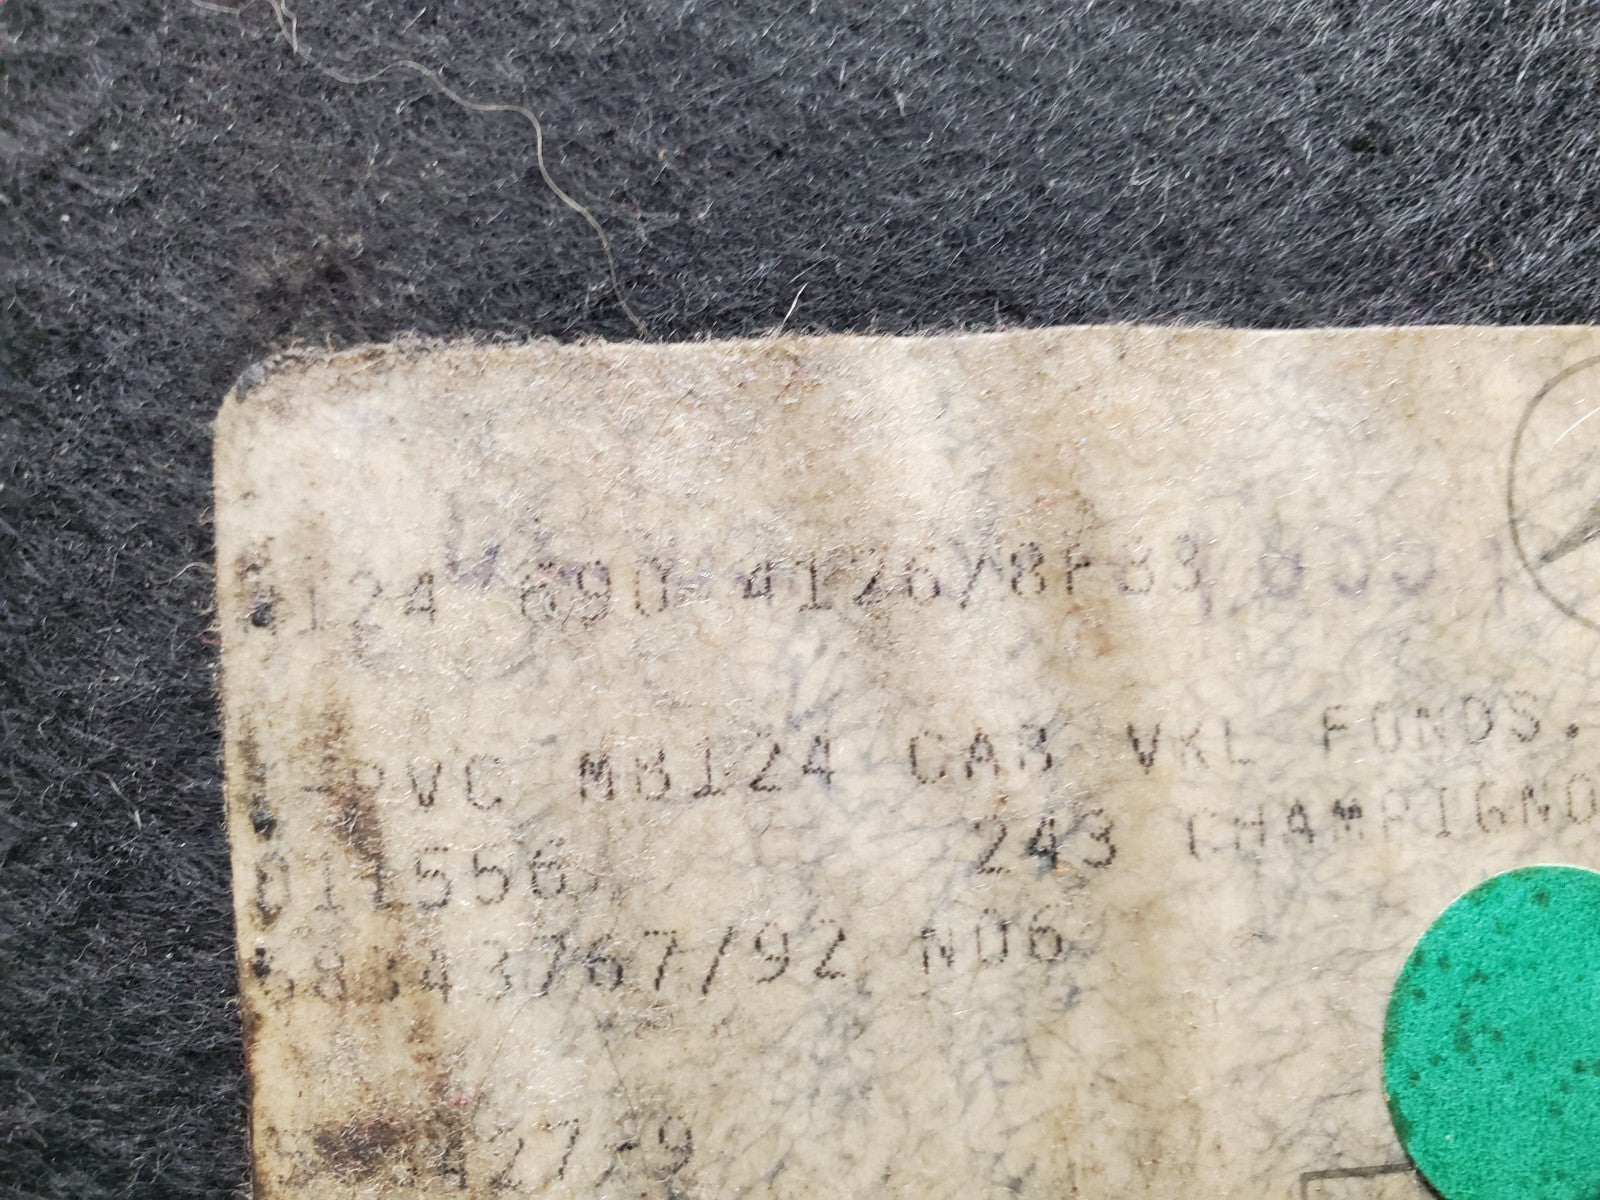 A124 690 4126/8F33
PVC MB124 CAB VKL FONDS.
011556 243 CHAMPIGNO
43767/92 N06